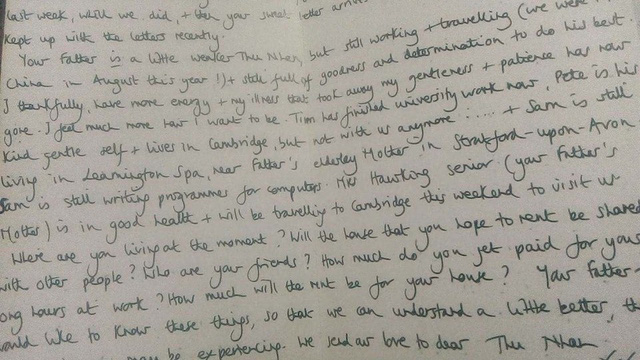 last week, which we did, + then your sweet letter
kept up with the letters recently.
Your Father is a little weaker Thu Nhan, but still working + travelling (we were
China in August this year!) + still full of goodness and determination to do his best.
I thankfully, have more energy + my illness that took away my gentleness + patience has now
gone. I feel much more how I want to be. Tim has finished university work now, Pete is his
kind gentle self + lives in Cambridge, but not with us anymore ..... + Sam is still
living in Leamington Spa, near Father's elderley Mother in Stratford-upon-Avon.
Sam is still writing programmes for computers. Mrs Hawking senior (your Father's
Mother) is in good health + will be travelling to Cambridge this weekend to visit us
Where are you living at the moment? Will the house that you hope to rent be shared
with other people? Who are your friends? How much do you get paid for your
ong hours at work? How much will the rent be for your house? Your Father +
ould like to know these things, so that we can understand a little better, th
may be experiencing. We send our love to dear Thu Nhan.